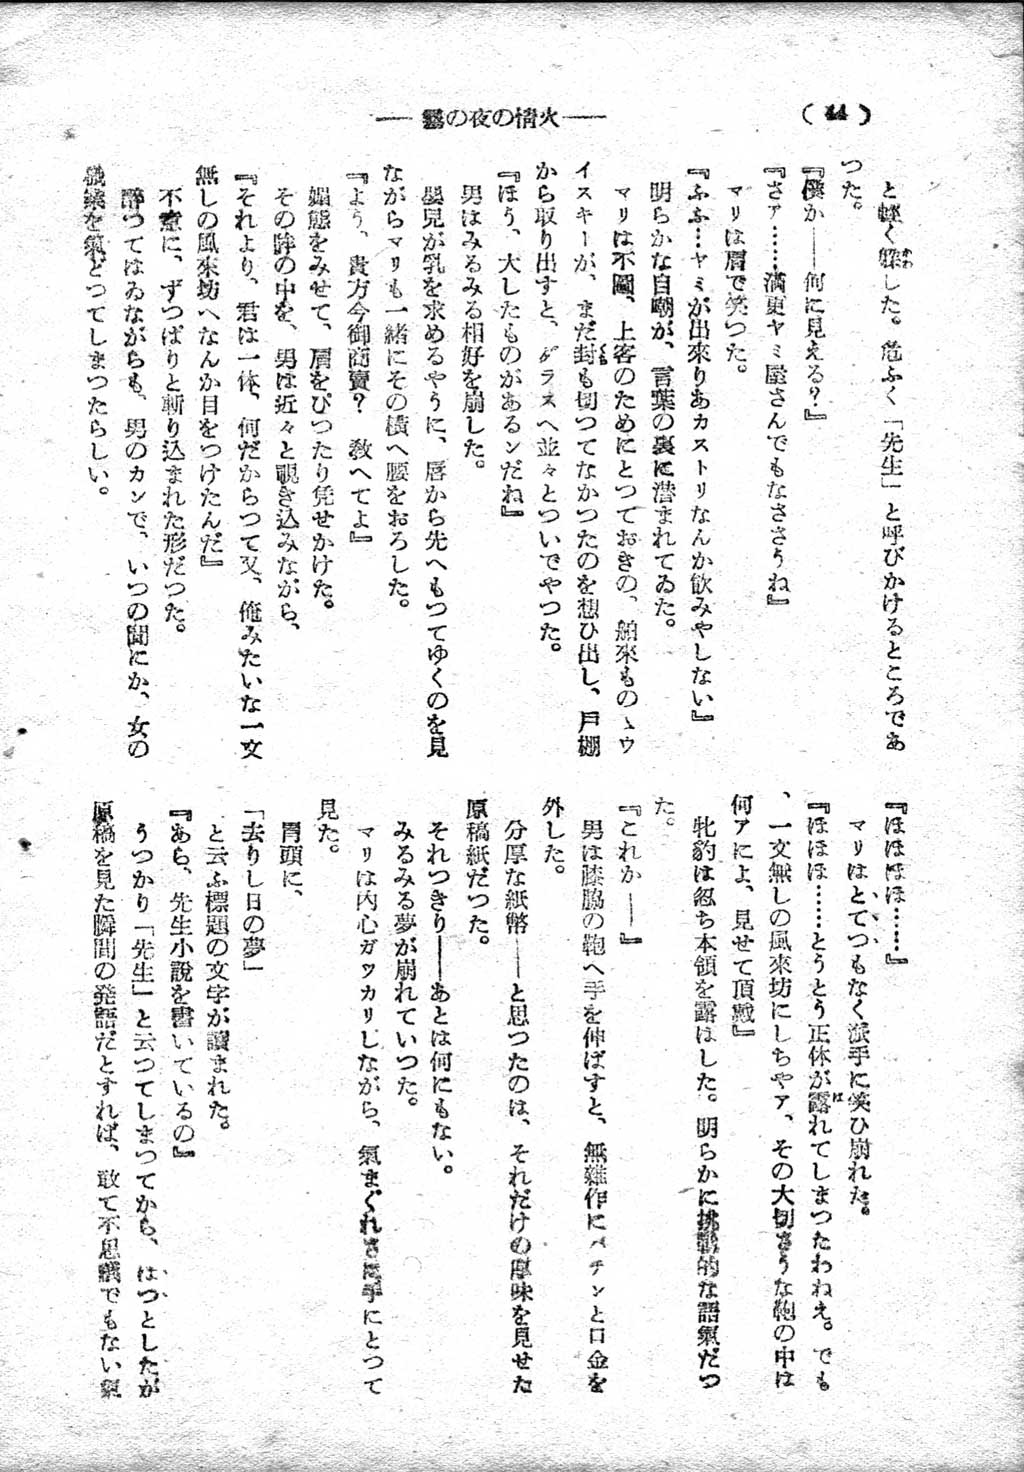 (44)
――火情の夜の靄――
と軽く躱した。危ふく「先生」と呼びかけるところであ
つた。
『僕か――何に見える?』
『さァ……満更ヤミ屋さんでもなささうね』
マリは肩で笑つた。
『ふふ…ヤミが出來りあカストリなんか飲みやしない』
明らかな自嘲が、言葉の裏に潜まれてゐた。
マリは不圖、上客のためにとつておきの、舶來ものゝウ
イスキーが、まだ封も切つてなかつたのを想ひ出し、戸棚
から取り出すと、グラスへ並々とついでやつた。
『ほう、大したものがあるンだね』
男はみるみる相好を崩した。
嬰兒が乳を求めるやうに、唇から先へもつてゆくのを見
ながらマリも一緒にその横へ腰をおろした。
『よう、貴方今御商賣? 敎へてよ』
媚態をみせて、肩をぴつたり凭せかけた。
その眸の中を、男は近々と覗き込みながら、
『それより、君は一体、何だからつて又、俺みたいな一文
無しの風來坊へなんか目をつけたんだ』
不意に、ずつぱりと斬り込まれた形だつた。
醉つてはゐながらも、男のカンで、いつの間にか、女の
職業を氣どつてしまつたらしい。
『ほほほほ……』
マリはとてつもなく派手に笑ひ崩れた。
『ほほほ……とうとう正体が露れてしまつたわねえ。でも
、一文無しの風來坊にしちやァ、その大切さうな鞄の中は
何アによ、見せて頂戴』
牝豹は忽ち本領を露はした。明らかに挑戰的な語氣だつ
た。
『これか――』
男は膝脇の鞄へ手を伸ばすと、無雜作にパチンと口金を
外した。
分厚な紙幣――と思つたのは、それだけの厚味を見せた
原稿紙だつた。
それつきり――あとは何にもない。
みるみる夢が崩れていつた。
マリは内心ガッカリしながら、氣まぐれさに手にとつて
見た。
冒頭に、
「去りし日の夢」
と云ふ標題の文字が讀まれた。
『あら、先生小說を書いているの』
うつかり「先生」と云つてしまつてから、はつとしたが
原稿を見た瞬間の発語だとすれば、敢て不思議でもない氣